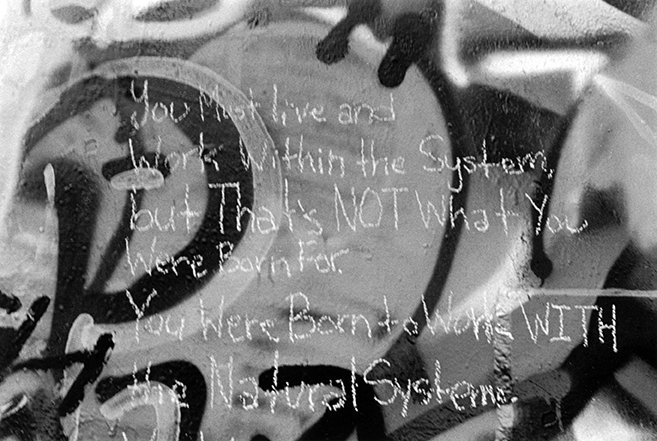 You Must live and
Work Within the System,
but That's NOT What You
Were Born For.
You Were Born to Work WITH
the Natural Systems.